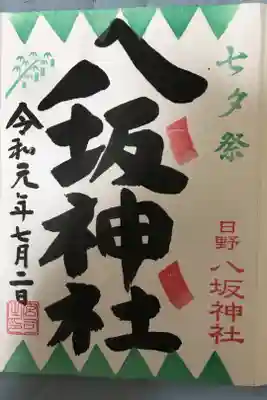 七夕祭
日野 八坂神社
八坂神社
令和元年七月二日